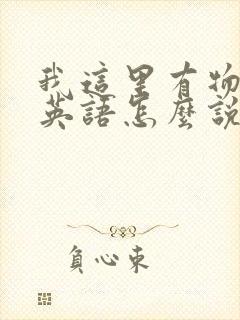 我這里有物
英語怎麼說
負心東